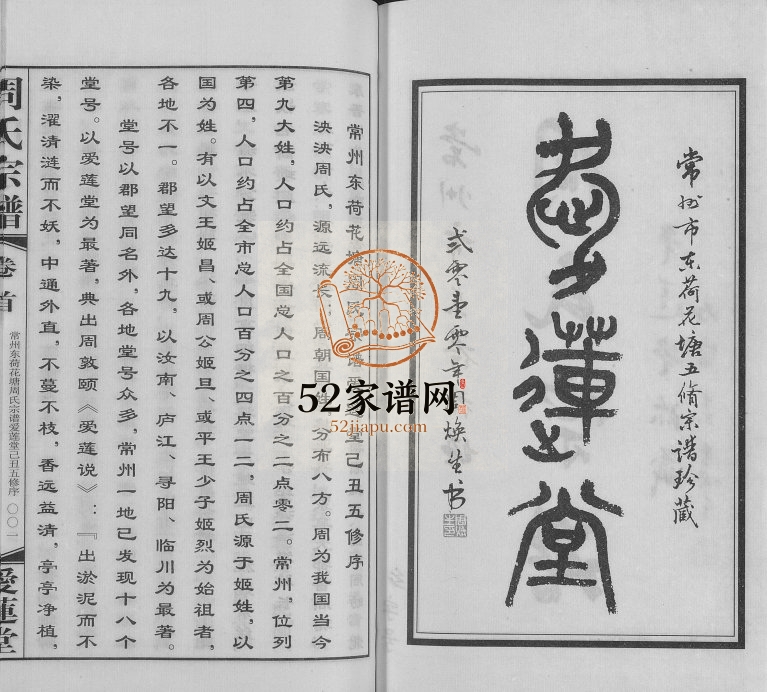 常州市东荷花塘五脩宗谱珍藏
爱莲堂
贰零壹零年周焕生书
常州东荷花塘周氏宗谱爱莲堂己丑五修序
泱泱周氏，源远流长；周朝国姓，分布八方。周为我国当今
第九大姓，人口约占全国总人口之百分之二点零二。常州，位列
第四，人口约占全市总人口百分之四点一二，周氏源于姬姓，以
国为姓。有以文王姬昌、或周公姬旦、或平王少子姬烈为始祖者，
各地不一。郡望多达十九，以汝南、庐江、寻阳、临川为最著。
堂号以郡望同名外，各地堂号众多，常州一地已发现十八个
堂号。以爱莲堂为最著，典出周敦颐《爱莲说》：『出淤泥而不
染，濯清涟而不妖，中通外直，不蔓不枝，香远益清，亭亭净植，
周氏宗譜
卷首
常州东荷花塘周氏宗谱爱莲堂己丑五修序
〇〇一
愛蓮堂
52家谱网
52jiapu.com